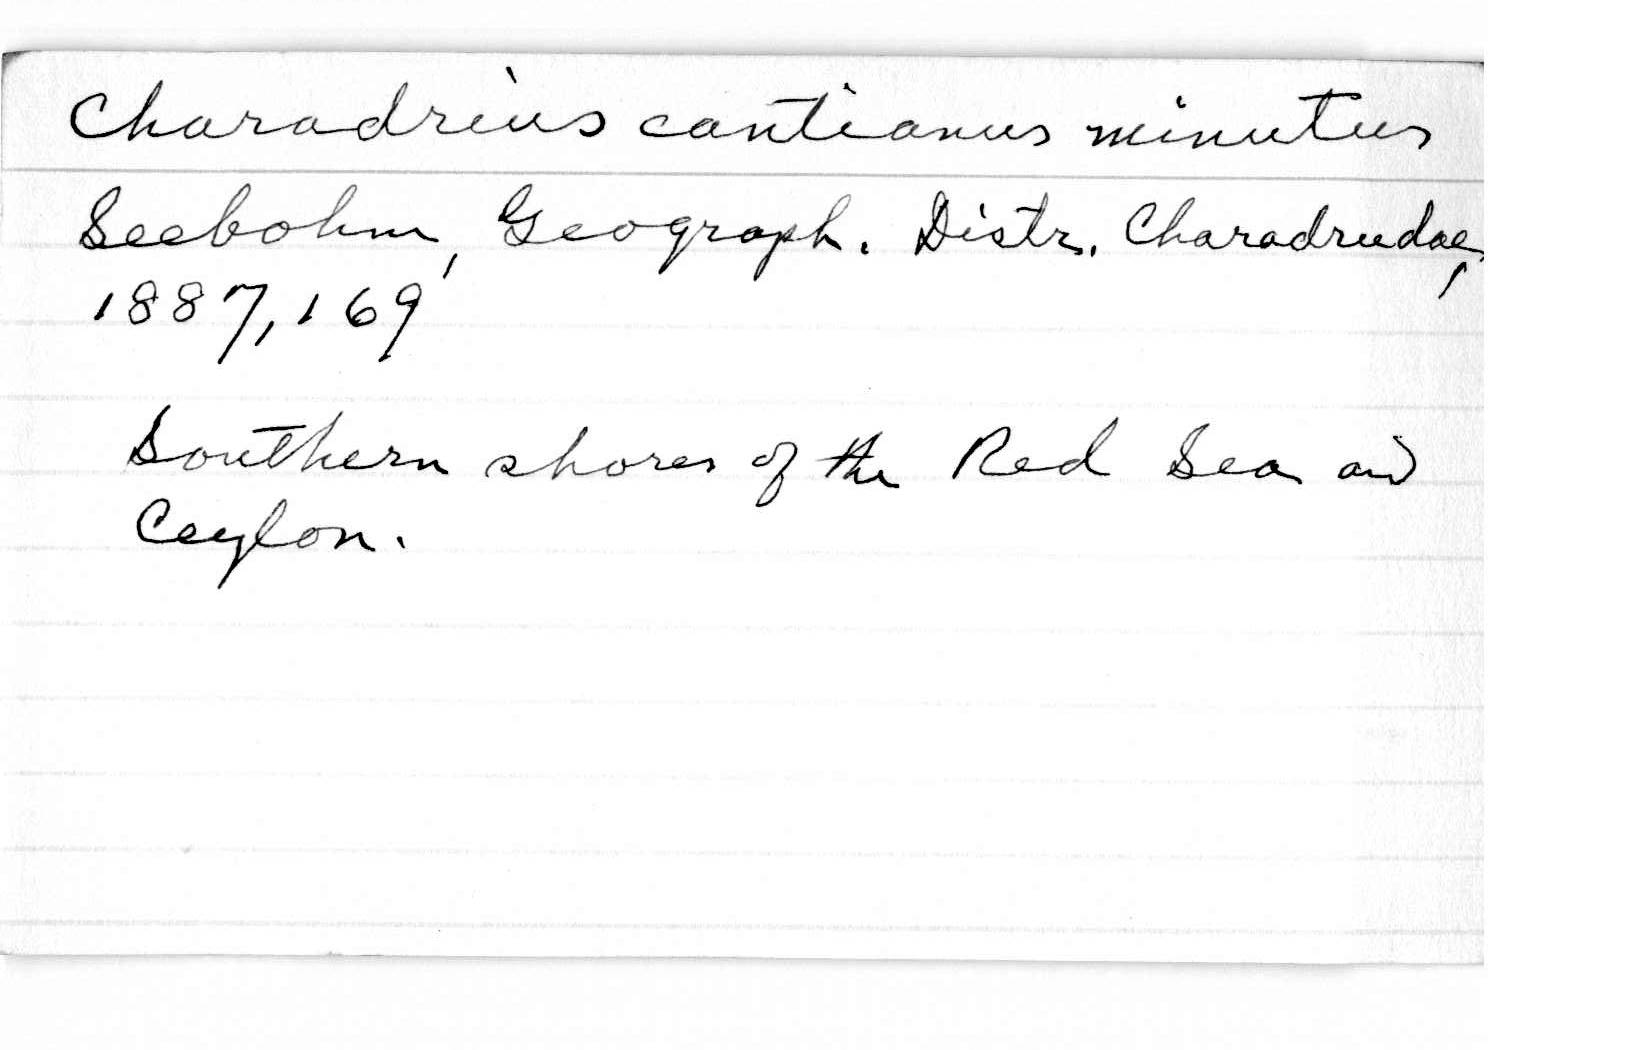 Charadrius cantianus minutus
Seebohm, Geograph. Distr. Charadriidae,
1887, 169
Southern shores of the Red Sea and
Ceylon.